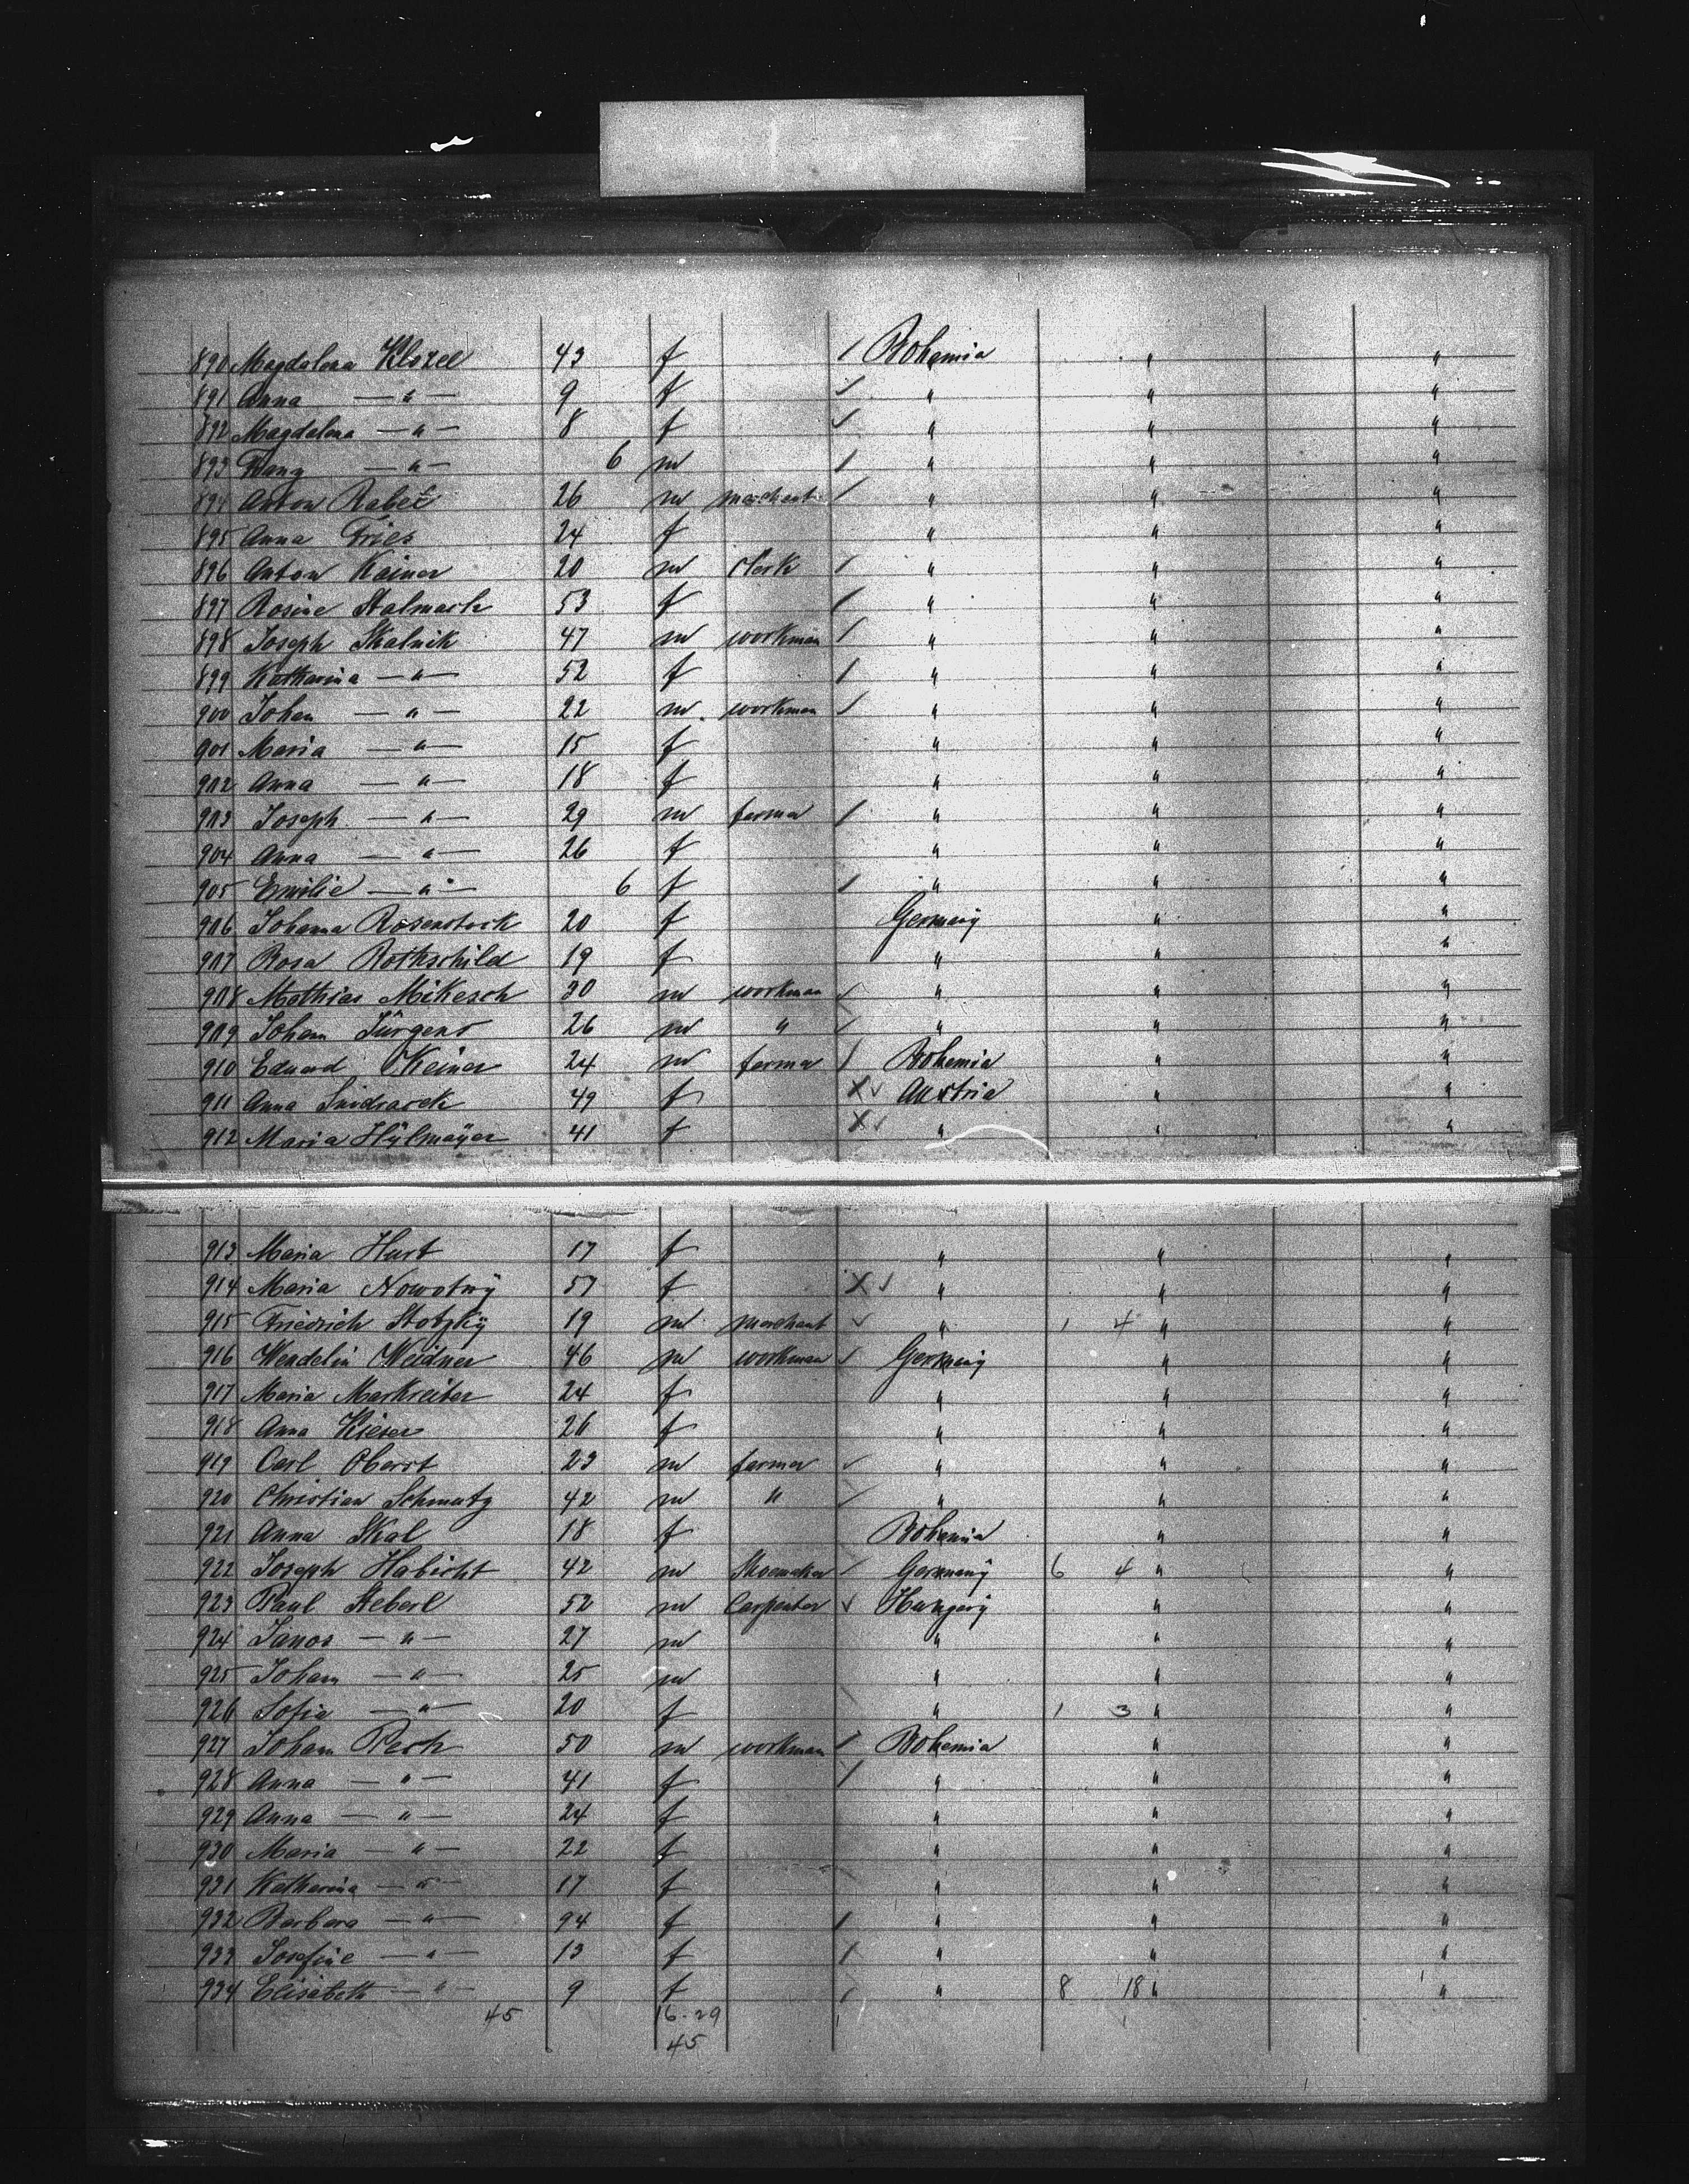 890 Magdalena Klozel 43 f / Bohemia " "
891 Anna — " — 9 f ✓ " " "
892 Magdalena — " — 8 f ✓ " " "
893 Franz — " — 6 m / " " "
894 Anton Rabeč 26 m merchant / " " "
895 Anna Fries 24 f " " "
896 Anton Kainer 20 m clerk / " " "
897 Rosine Stalmach 53 f / " " "
898 Joseph Skalnik 47 m workman / " " "
899 Katharina — " — 52 f / " " "
900 Johan — " — 22 m workman ✓ " " "
901 Maria — " — 15 f " " "
902 Anna — " — 18 f " " "
903 Joseph — " — 29 m farmer / " " "
904 Anna — " — 26 f " " "
905 Emilie — " — 6 f / " " "
906 Johanna Rosenstock 20 f Germany " "
907 Rosa Rothschild 19 f " " "
908 Mathias Mikesch 30 m workman ✓ " " "
909 Johann Jürgens 26 m " ✓ " " "
910 Eduard Keiner 24 m farmer / Bohemia " "
911 Anna 49 f X ✓ Austria " "
912 Maria Hÿlmaÿer 41 f X ✓ " " "
913 Maria Hurt 17 f " " "
914 Maria Nowotnÿ 57 f X ✓ " " "
915 Friedrich Stotzkÿ 19 m merchant ✓ " 1 4 " "
916 Wendelin Weidner 46 m workman ✓ Germany " "
917 Maria Markreiter 24 f " " "
918 Anna Kieser 26 f " " "
919 Carl Oberst 23 m farmer ✓ " " "
920 Christian Schmutz 42 m " ✓ " " "
921 Anna Skal 18 f Bohemia " "
922 Joseph Habicht 42 m Shoemaker / Germanÿ 6 4 " "
923 Paul Heberl 52 m Carpenter ✓ Hungarÿ " "
924 Janos — " — 27 m " " "
925 Johann — " — 25 m " " "
926 Sofie — " — 20 f " 1 3 " "
927 Johann Pech 50 m workman / Bohemia " "
928 Anna — " — 41 f / " " "
929 Anna — " — 24 f " " "
930 Maria — " — 22 f " " "
931 Katharina — " — 17 f " " "
932 Barbara — " — 94 f / " " "
933 Josefine — " — 13 f / " " "
934 Elisabeth — " — 9 f / " 8 18 " "
45 16-29
45